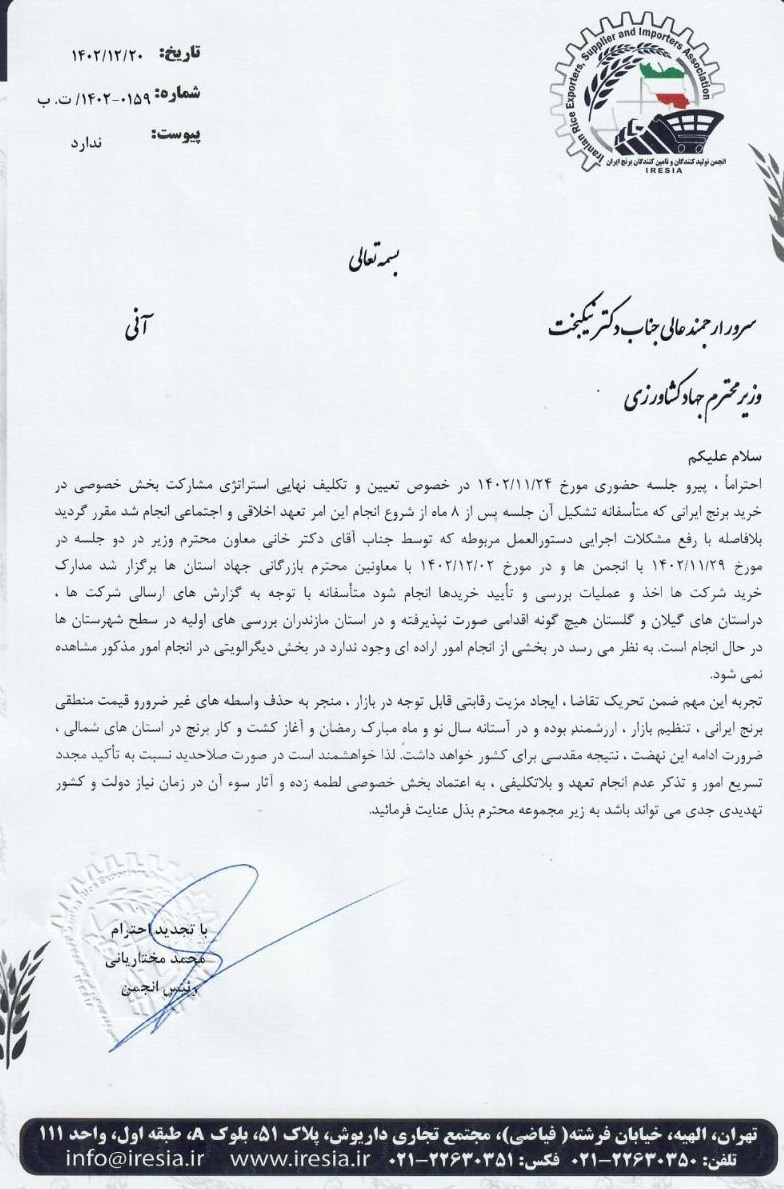 تاریخ: ۱۴۰۲/۱۲/۲۰
شماره: ۰۱۵۹-۱۴۰۲/ ت. ب
پیوست: ندارد
Iranian Rice Exporters, Supplier and Importers Association
انجمن تولید کنندگان و تامین کنندگان برنج ایران
IRESIA
بسمه تعالی
سرور ارجمند عالی جناب دکتر نیکبخت
آنی
وزیر محترم جهاد کشاورزی
سلام علیکم
احتراماً ، پیرو جلسه حضوری مورخ ۱۴۰۲/۱۱/۲۴ در خصوص تعیین و تکلیف نهایی استراتژی مشارکت بخش خصوصی در
خرید برنج ایرانی که متأسفانه تشکیل آن جلسه پس از ۸ ماه از شروع انجام این امر تعهد اخلاقی و اجتماعی انجام شد مقرر گردید
بلافاصله با رفع مشکلات اجرایی دستورالعمل مربوطه که توسط جناب آقای دکتر خانی معاون محترم وزیر در دو جلسه در
مورخ ۱۴۰۲/۱۱/۲۹ با انجمن ها و در مورخ ۱۴۰۲/۱۲/۰۲ با معاونین محترم بازرگانی جهاد استان ها برگزار شد مدارک
خرید شرکت ها اخذ و عملیات بررسی و تأیید خریدها انجام شود متأسفانه با توجه به گزارش های ارسالی شرکت ها ،
دراستان های گیلان و گلستان هیچ گونه اقدامی صورت نپذیرفته و در استان مازندران بررسی های اولیه در سطح شهرستان ها
در حال انجام است. به نظر می رسد در بخشی از انجام امور اراده ای وجود ندارد در بخش دیگرالویتی در انجام امور مذکور مشاهده
نمی شود.
تجربه این مهم ضمن تحریک تقاضا ، ایجاد مزیت رقابتی قابل توجه در بازار ، منجر به حذف واسطه های غیر ضرورو قیمت منطقی
برنج ایرانی ، تنظیم بازار ، ارزشمند بوده و در آستانه سال نو و ماه مبارک رمضان و آغاز کشت و کار برنج در استان های شمالی ،
ضرورت ادامه این نهضت ، نتیجه مقدسی برای کشور خواهد داشت. لذا خواهشمند است در صورت صلاحدید نسبت به تأکید مجدد
تسریع امور و تذکر عدم انجام تعهد و بلاتکلیفی ، به اعتماد بخش خصوصی لطمه زده و آثار سوء آن در زمان نیاز دولت و کشور
تهدیدی جدی می تواند باشد به زیر مجموعه محترم بذل عنایت فرمائید.
با تجدید احترام
محمد مختاریانی
رئیس انجمن
تهران، الهیه، خیابان فرشته( فیاضی)، مجتمع تجاری داریوش، پلاک ۵۱، بلوک A، طبقه اول، واحد ۱۱۱
تلفن: ۲۲۶۳۰۳۵۰-۰۲۱ فکس: ۲۲۶۳۰۳۵۱-۰۲۱ www.iresia.ir info@iresia.ir